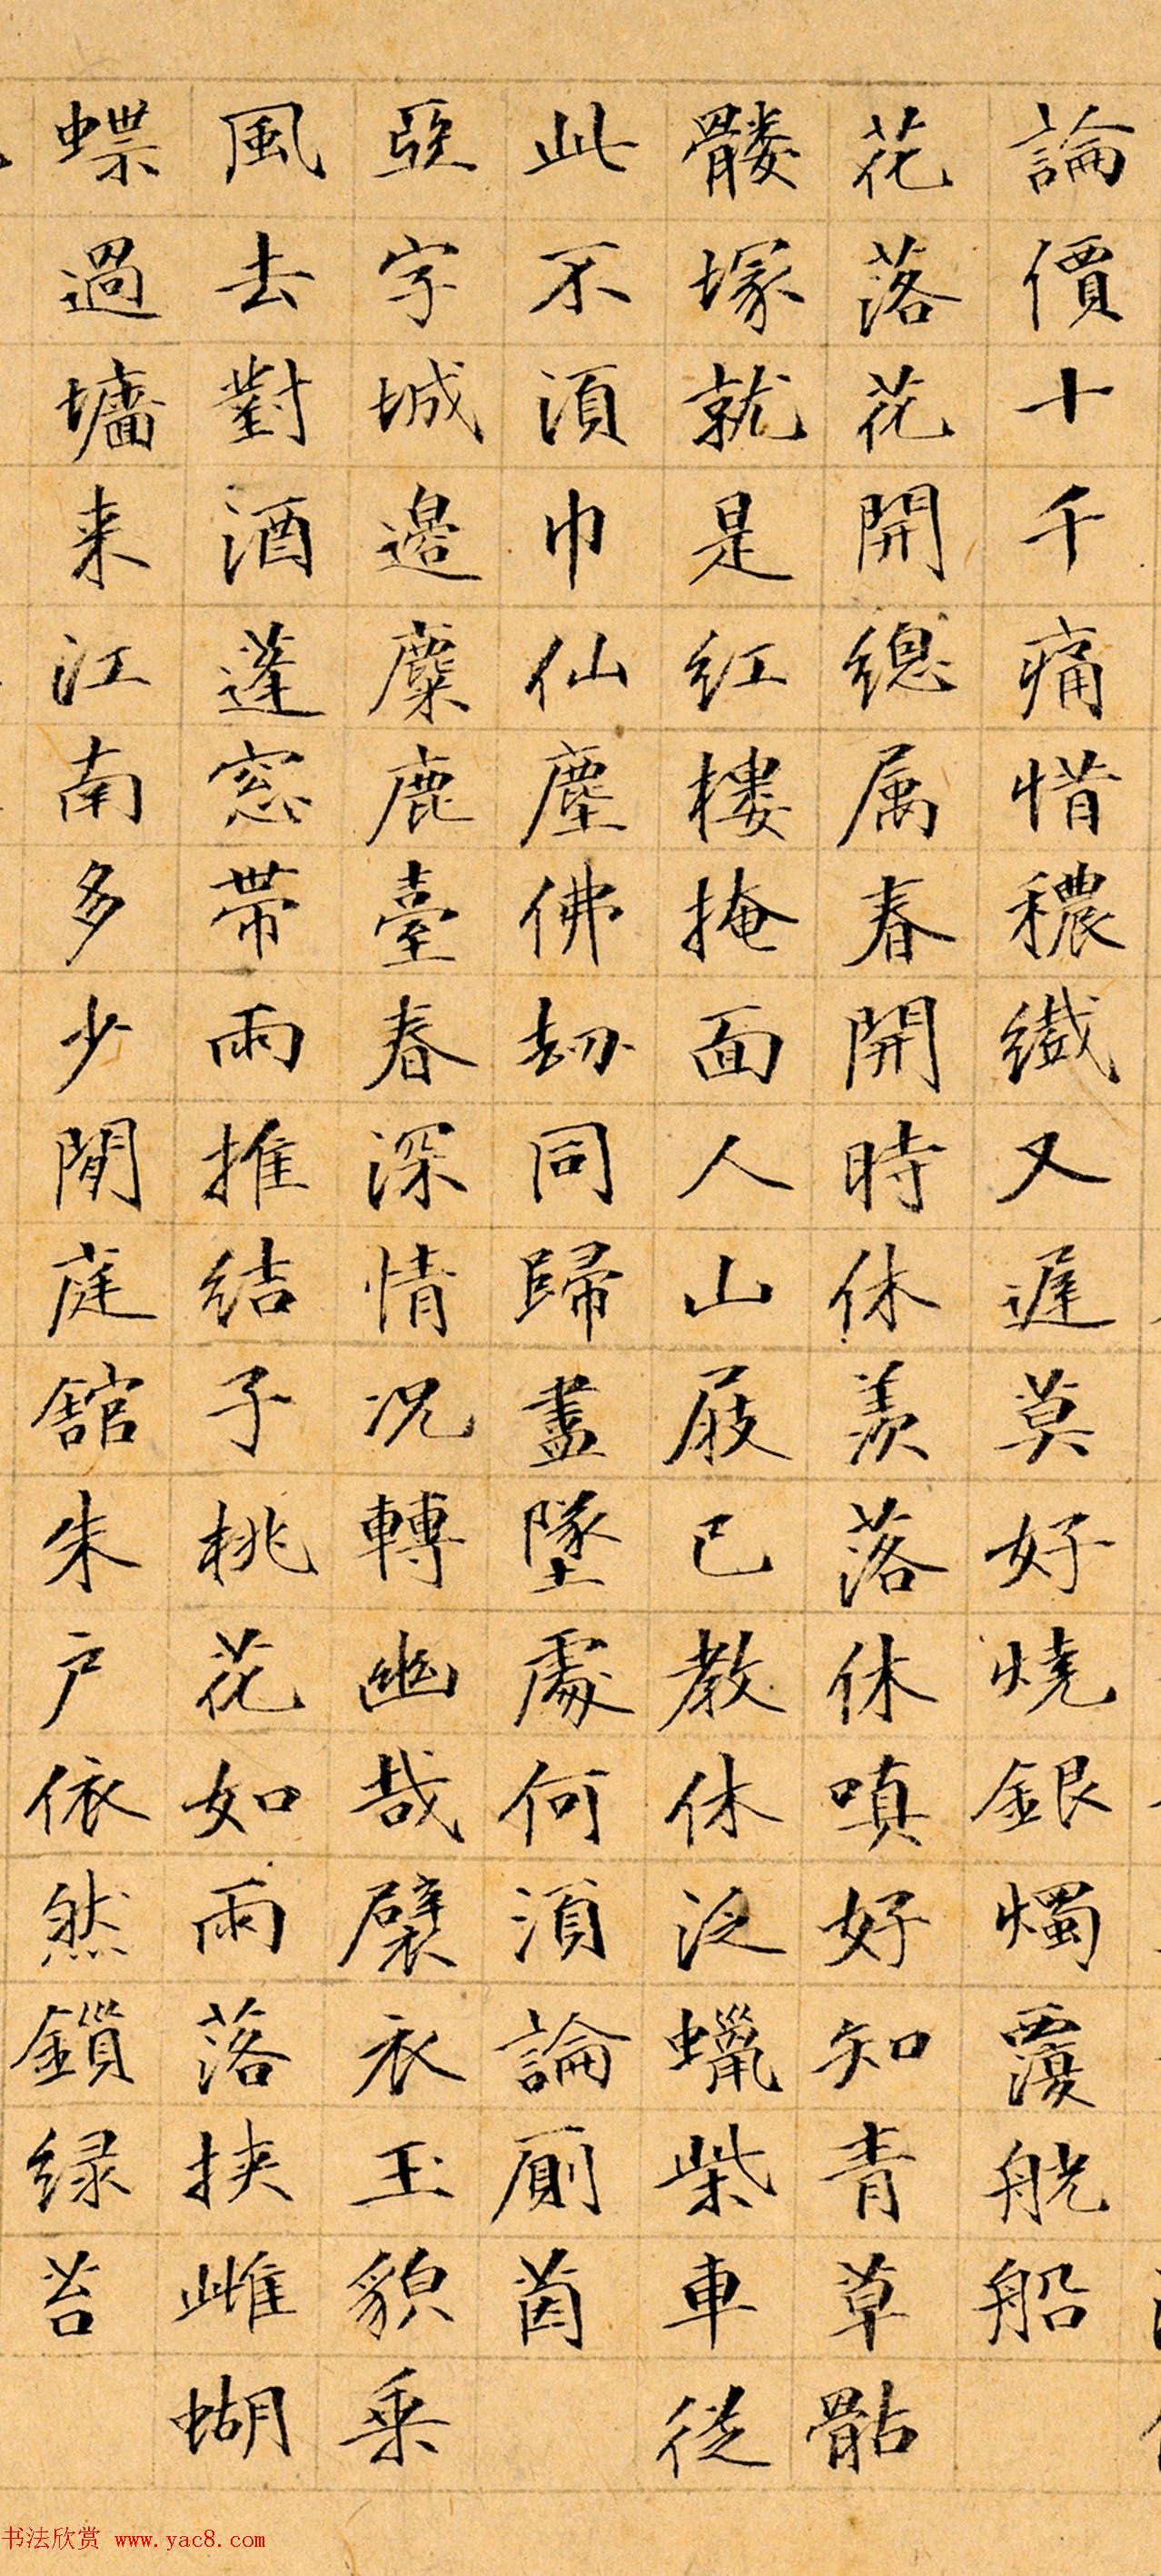 論價十千痛惜穠纎又遲莫好燒銀燭覆觥船
花落花開總属春開時休羨落休嗔好知青草骷
髏塚就是紅樓掩面人山屐已教休泛蠟柴車從
此不湏巾仙塵佛劫同歸盡墜處何湏論厠茵
亞字城邊麋鹿臺春深情况轉幽哉襞衣玉貌乗
風去對酒蓬窓帶雨推結子桃花如雨落挾雌蝴
蝶過墻来江南多少閒庭舘朱戶依然鎖绿苔
书法欣赏 www.yac8.com